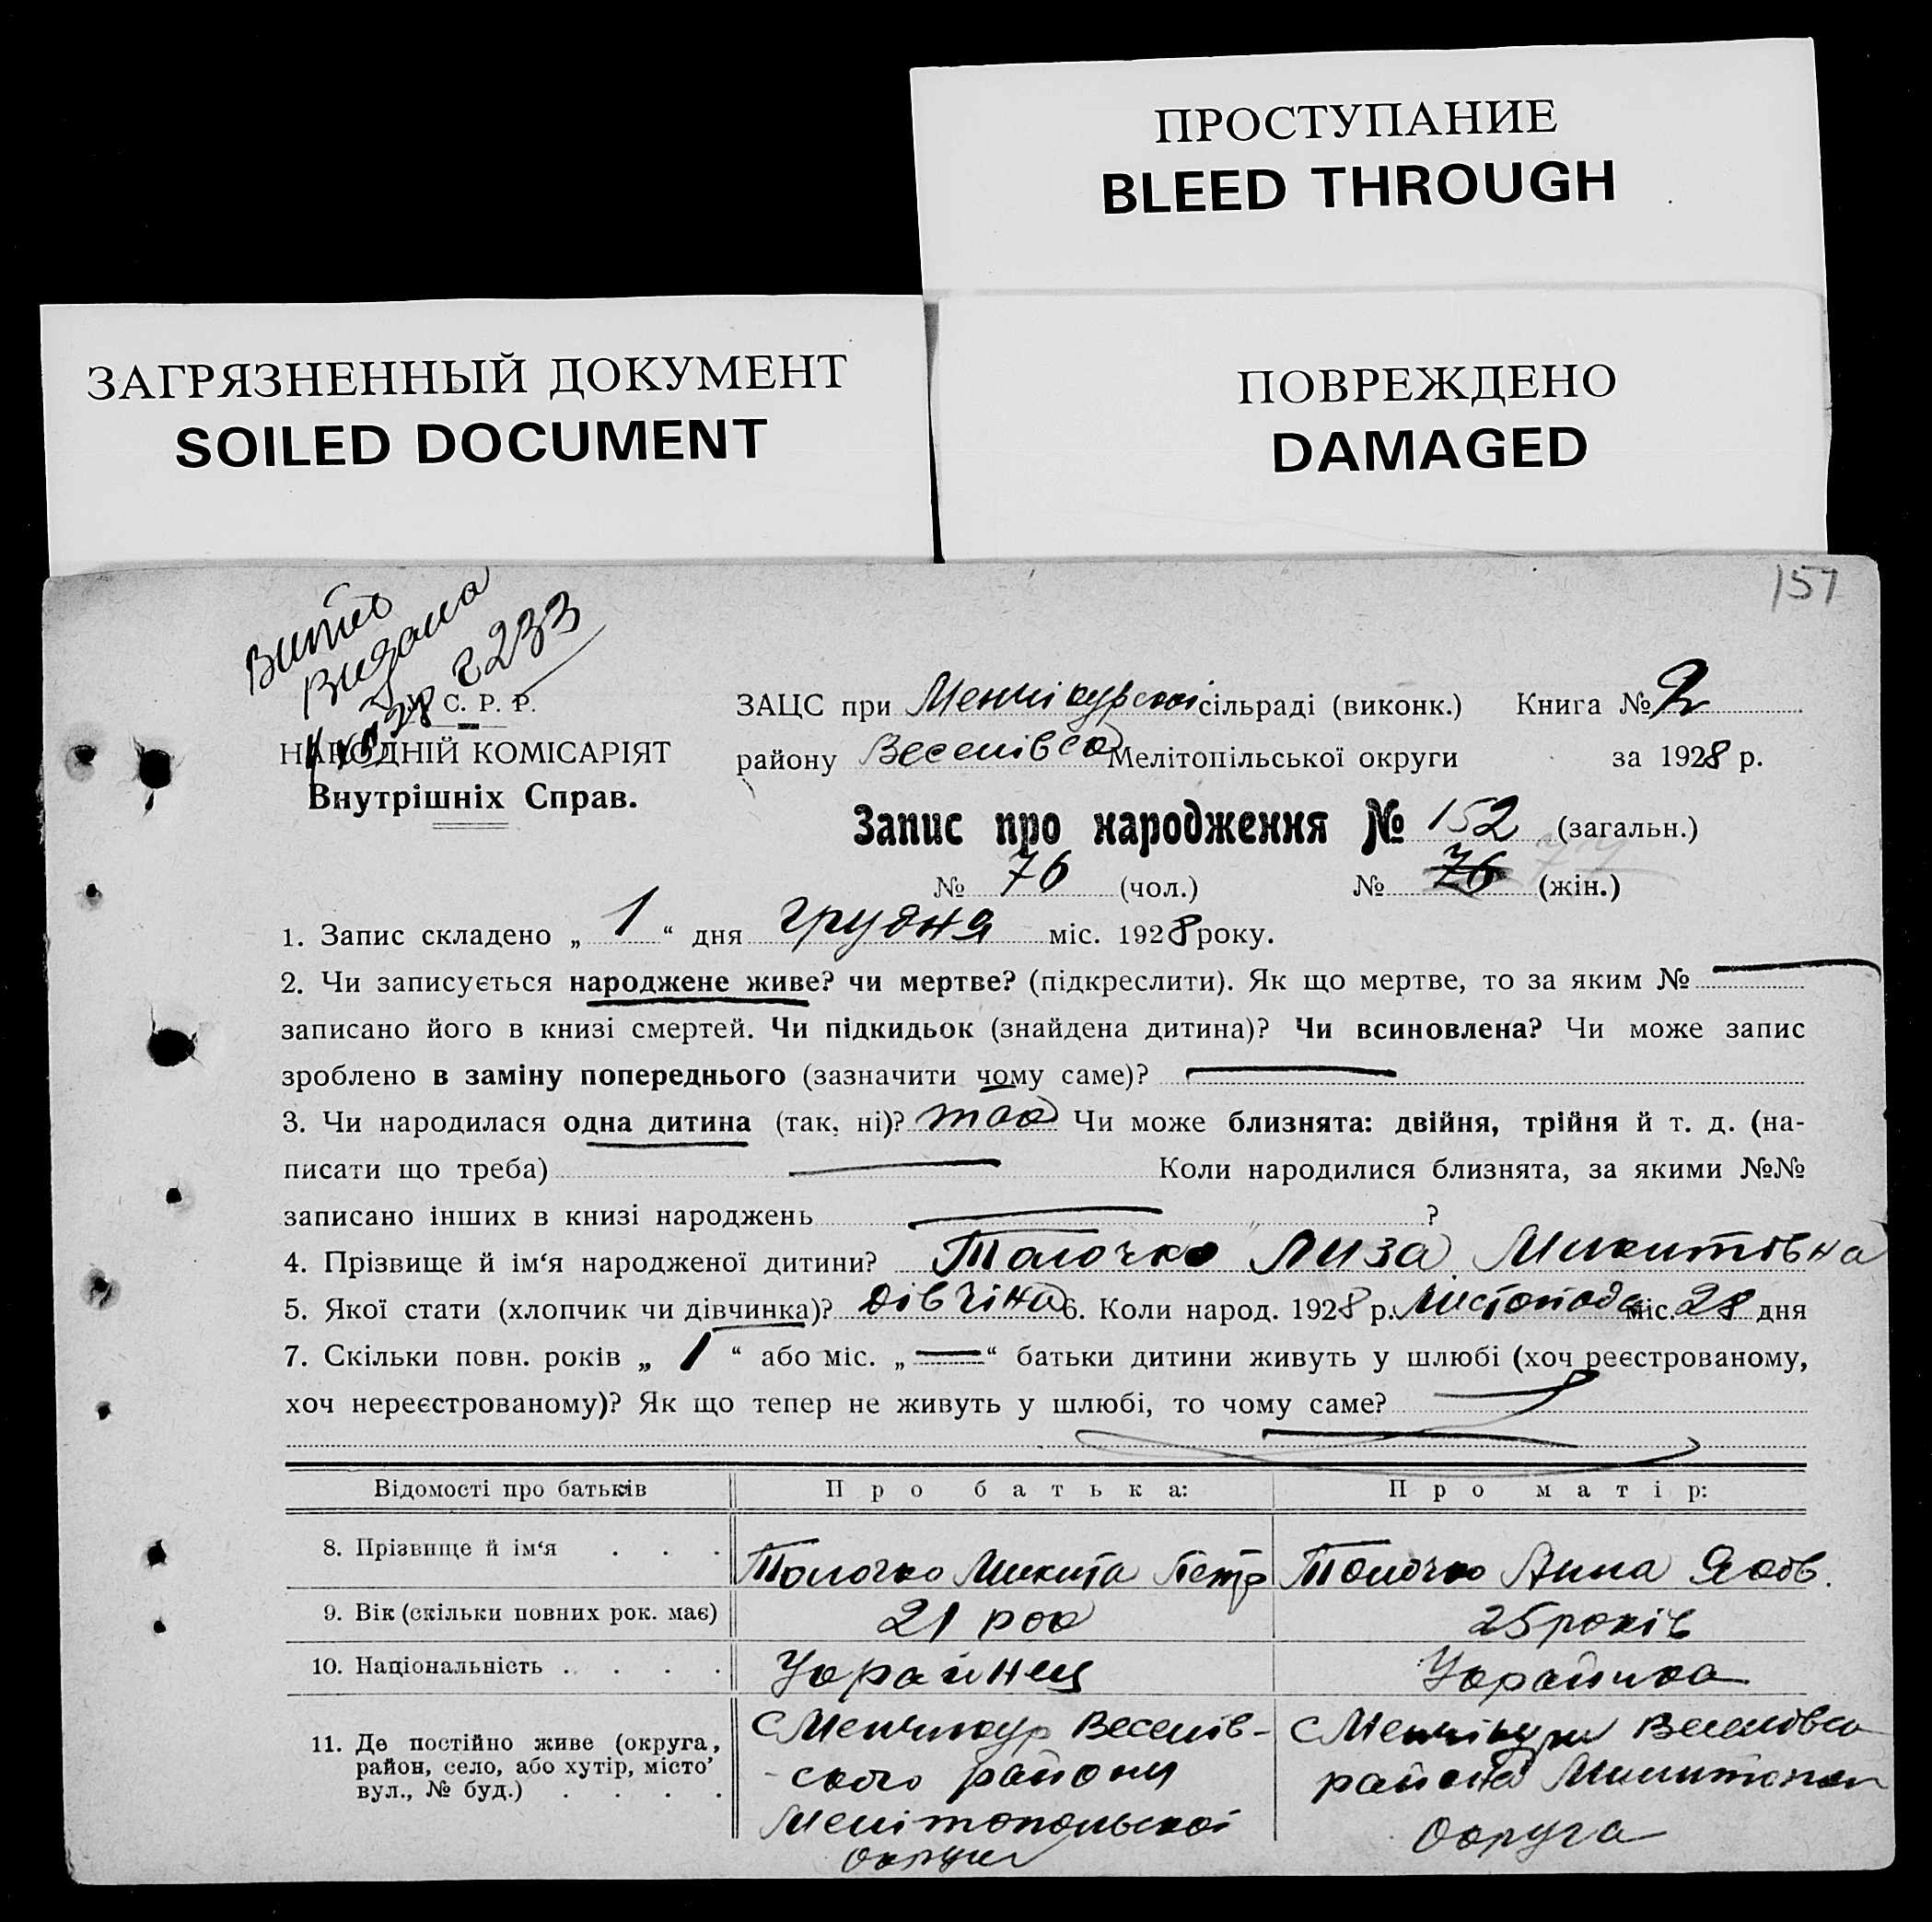 ПРОСТУПАНИЕ
BLEED THROUGH
ЗАГРЯЗНЕННЫЙ ДОКУМЕНТ
SOILED DOCUMENT
ПОВРЕЖДЕНО
DAMAGED
157
Витяг
Видана
У. С. Р. Р.
НАРОДНІЙ КОМІСАРІЯТ
Внутрішніх Справ.
ЗАЦС при Менчікурській сільраді (виконк.) Книга № 2
району Веселівськ Мелітопільської округи за 1928 р.
Запис про народження № 152 (загальн.)
№ 76 (чол.) № 76 77 (жін.)
1. Запис складено „ 1 “ дня грудня міс. 1928 року.
2. Чи записується народжене живе? чи мертве? (підкреслити). Як що мертве, то за яким №
записано його в книзі смертей. Чи підкидьок (знайдена дитина)? Чи всиновлена? Чи може запис
зроблено в заміну попереднього (зазначити чому саме)?
3. Чи народилася одна дитина (так, ні)? так Чи може близнята: двійня, трійня й т. д. (на-
писати що треба) Коли народилися близнята, за якими №№
записано інших в книзі народжень ?
4. Прізвище й ім‘я народженої дитини? Толочко Лиза Микитівна
5. Якої стати (хлопчик чи дівчинка)? Дівчіна 6. Коли народ. 1928 р. Листопода міс. 28 дня
7. Скільки повн. років „ 1 “ або міс. „ — “ батьки дитини живуть у шлюбі (хоч реєстрованому,
хоч нереєстрованому)? Як що тепер не живуть у шлюбі, то чому саме?
Відомості про батьків Про батька: Про матір:
8. Прізвище й ім‘я . . . Толочко Микита Петр Толочко Анна Яков.
9. Вік (скільки повних рок. має) 21 рок 25 років
10. Національність . . . . Украінец Украінка
11. Де постійно живе (округа, С Менчикур Веселів- С Менчікури Веселовск
район, село, або хутір, місто, -ского району района
вул., № буд.) . . . . Мелітопольскоі Округа
округи